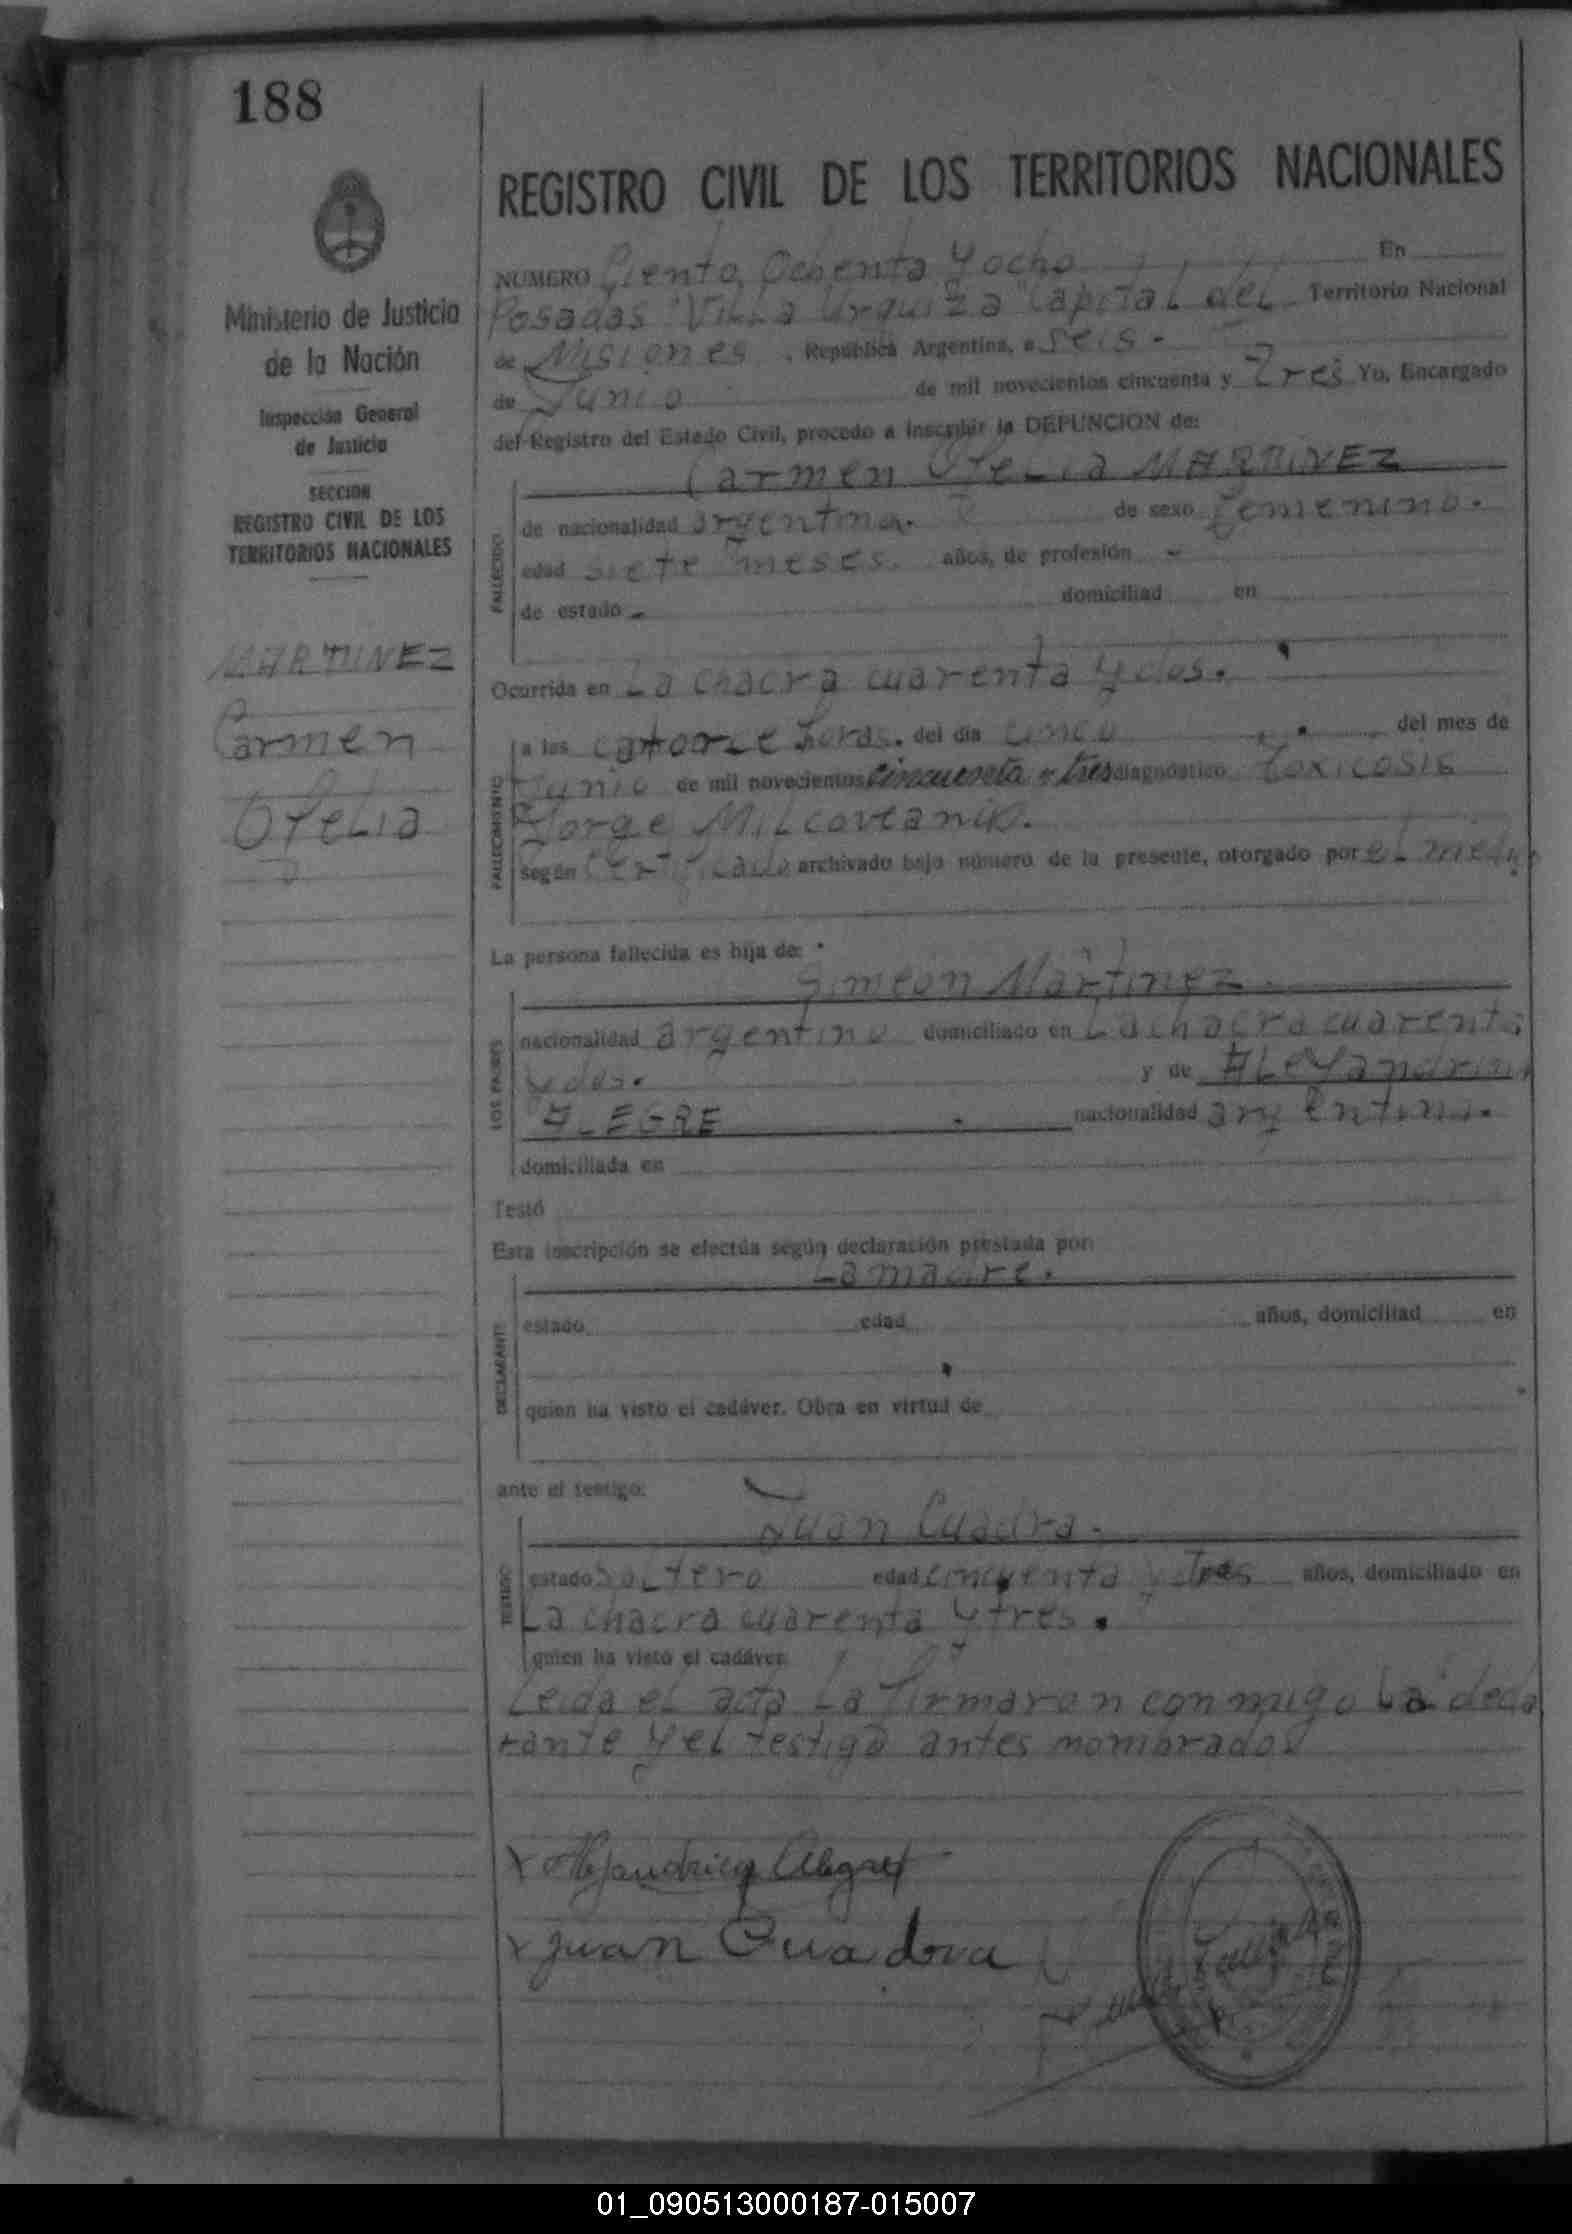 188
REGISTRO CIVIL DE LOS TERRITORIOS NACIONALES
Ministerio de Justicia
de la Nación
Inspección General
de Justicia
SECCION
REGISTRO CIVIL DE LOS
TERRITORIOS NACIONALES
MARTINEZ
Carmen
Ofelia
NUMERO Ciento Ochenta y ocho En
Posadas "Villa Urquiza" Capital del Territorio Nacional
de Misiones, República Argentina, a seis.
de Junio de mil novecientos cincuenta y Tres Yo, Encargado
del Registro del Estado Civil, procedo a inscribir la DEFUNCION de:
Carmen Ofelia MARTINEZ
FALLECIDO
de nacionalidad argentina. de sexo femenino.
edad siete meses. años, de profesión -
de estado - domiciliad en
Ocurrida en La chacra cuarenta y dos.
FALLECIMIENTO
a las catorce horas. del día cinco del mes de
Junio de mil novecientos cincuenta y tres diagnóstico toxicosis
Jorge
según certificado archivado bajo número de la presente, otorgado por el
La persona fallecida es hija de:
Simeón Martinez.
LOS PADRES
nacionalidad argentino domiciliado en La chacra cuarenta
y dos. y de
ALEGRE nacionalidad argentina.
domiciliada en
Testó
Esta inscripción se efectúa según declaración prestada por:
La madre.
DECLARANTE
estado edad años, domiciliad en
quien ha visto el cadáver. Obra en virtud de
ante el testigo:
Juan Cuadra.
TESTIGO
estado soltero edad cincuenta y tres años, domiciliado en
La chacra cuarenta y tres.
quien ha visto el cadáver.
Leida el acta La firmaron conmigo La decla
rante y el testigo antes nombrados
x Alejandrina Alegre
x Juan Cuadra
01_090513000187-015007